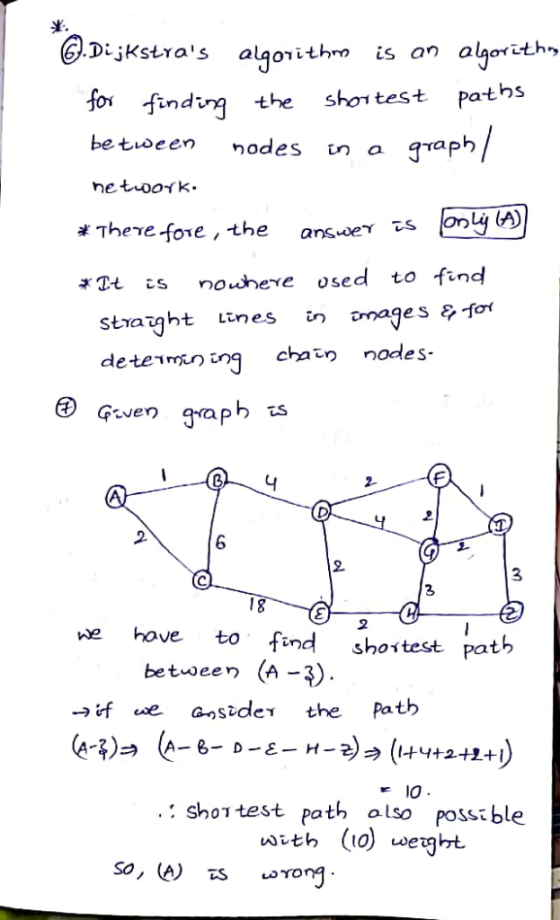 *.
⑥. Dijkstra's algorithm is an algorithm
for finding the shortest paths
between nodes in a graph/
network.
* Therefore, the answer is only (A)
* It is nowhere used to find
straight lines in images & for
determining chain nodes.
⑦ Given graph is
1
B
4
2
F
A
D
4
2
1
I
2
6
G
2
C
2
3
3
18
E
2
H
1
Z
we have to find shortest path
between (A-z).
→ if we consider the path
(A-z) ⇒ (A-B-D-E-H-Z) ⇒ (1+4+2+2+1)
= 10.
∴ shortest path also possible
with (10) weight
so, (A) is wrong.